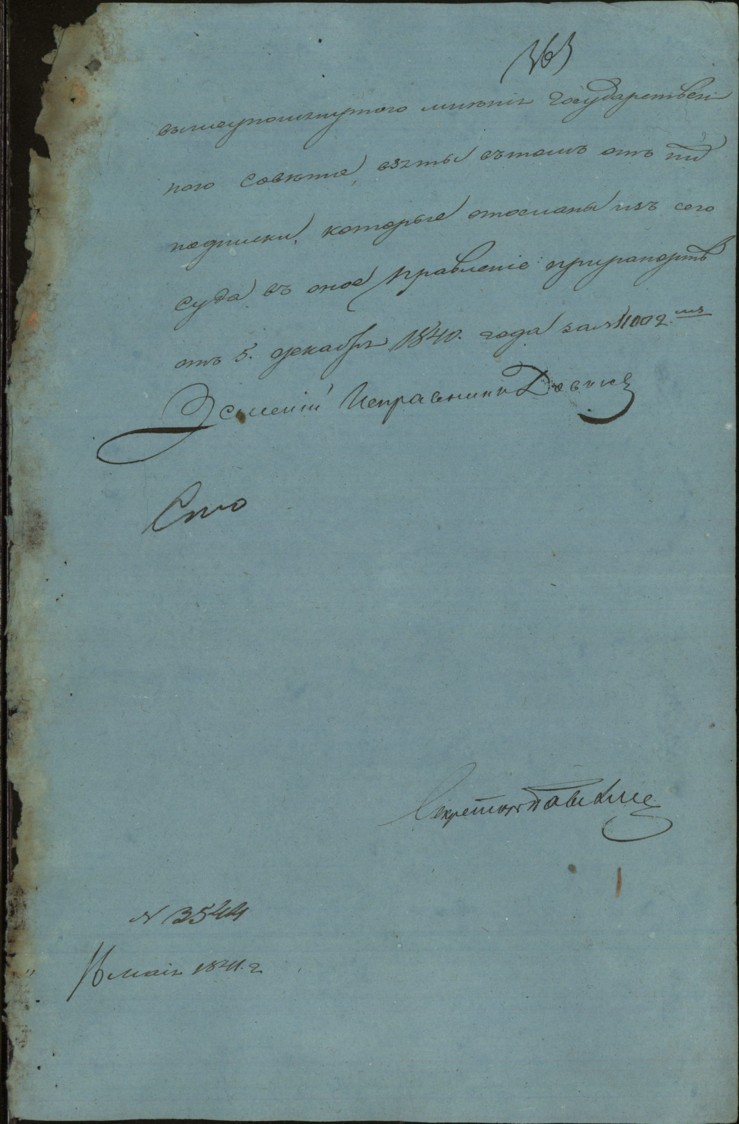 363
вышеупомянутого мнѣнія Государствен
ного совѣта, взяты въ томъ отъ
подписки, которые отосланы изъ сего
суда въ оное Правленіе при рапортѣ
отъ 5. декабря 1840. года за №
Земскій Исправникъ
Секретарь
N 3544
16 мая 1841. г